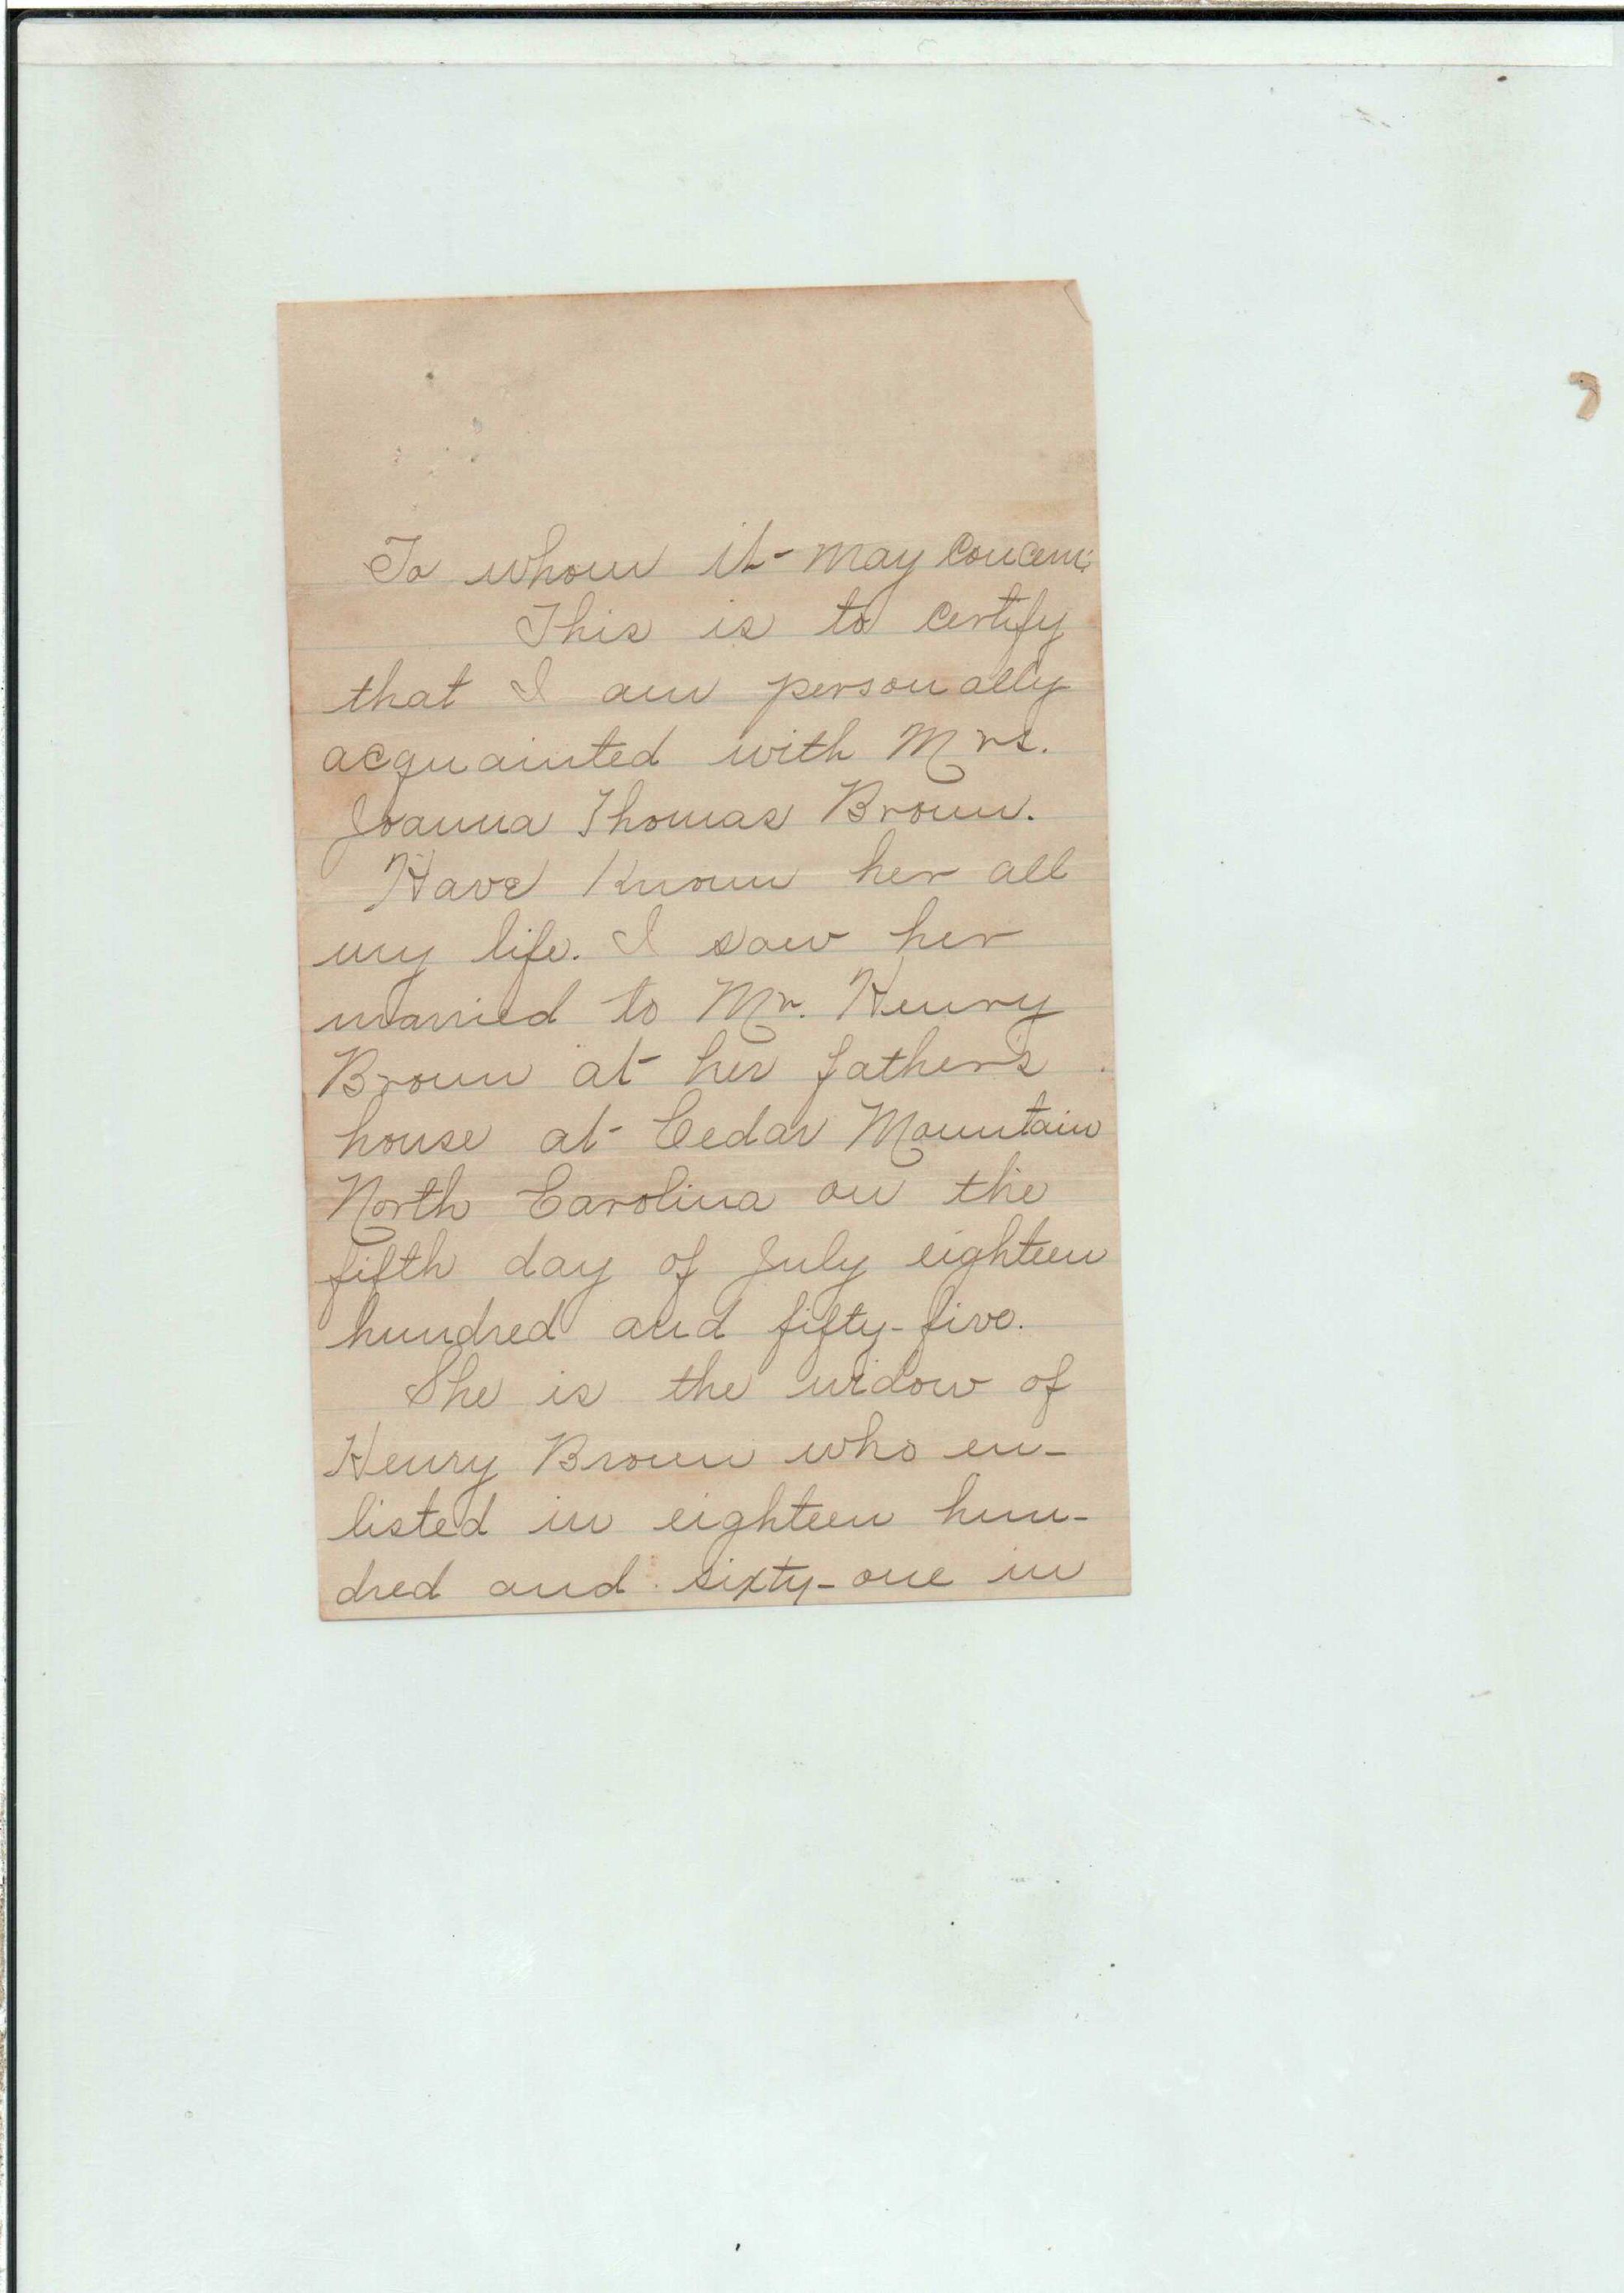 To whom it may Concern:
This is to Certify
that I am personally
acquainted with Mrs.
Joanna Thomas Brown.
Have Known her all
my life. I saw her
married to Mr. Henry
Brown at her father's
house at Cedar Mountain
North Carolina on the
fifth day of July eighteen
hundred and fifty-five.
She is the widow of
Henry Brown who en-
listed in eighteen hun-
dred and sixty-one in